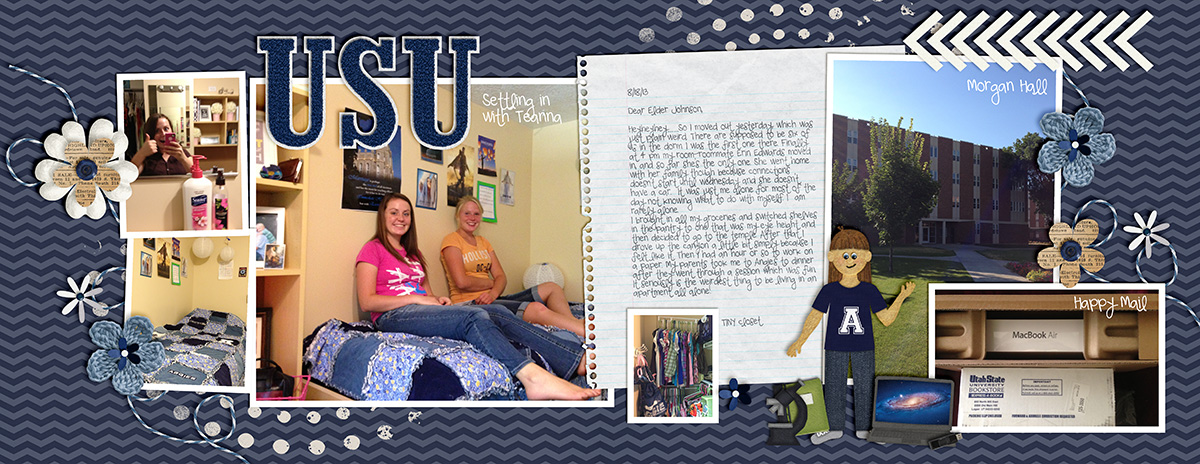 USU
Settling in
with Teanna
8/18/13
Dear Elder Johnson,
Hey hey hey... So I moved out yesterday which was
just plain weird. There are supposed to be six of
us in the dorm. I was the first one there. Finally
at 4 pm my room-roommate Erin Edwards moved
in and so far she's the only one. She went home
with her family though because connections
doesn't start until Wednesday and she doesn't
have a car. It was just me alone for most of the
day not knowing what to do with myself. I am
rarely alone.
I brought in all my groceries and switched shelves
in the pantry to one that was my eye height and
then decided to go to the temple. After that I
drove up the canyon a little bit simply because I
felt like it. Then I had an hour or so to work on
a paper. My parents took me to Angie's to dinner
after they went through a session which was fun.
It seriously is the weirdest thing to be living in an
apartment all alone!
TINY closet
Morgan Hall
A
Happy Mail
MacBook Air
UtahState
UNIVERSITY
BOOKSTORE